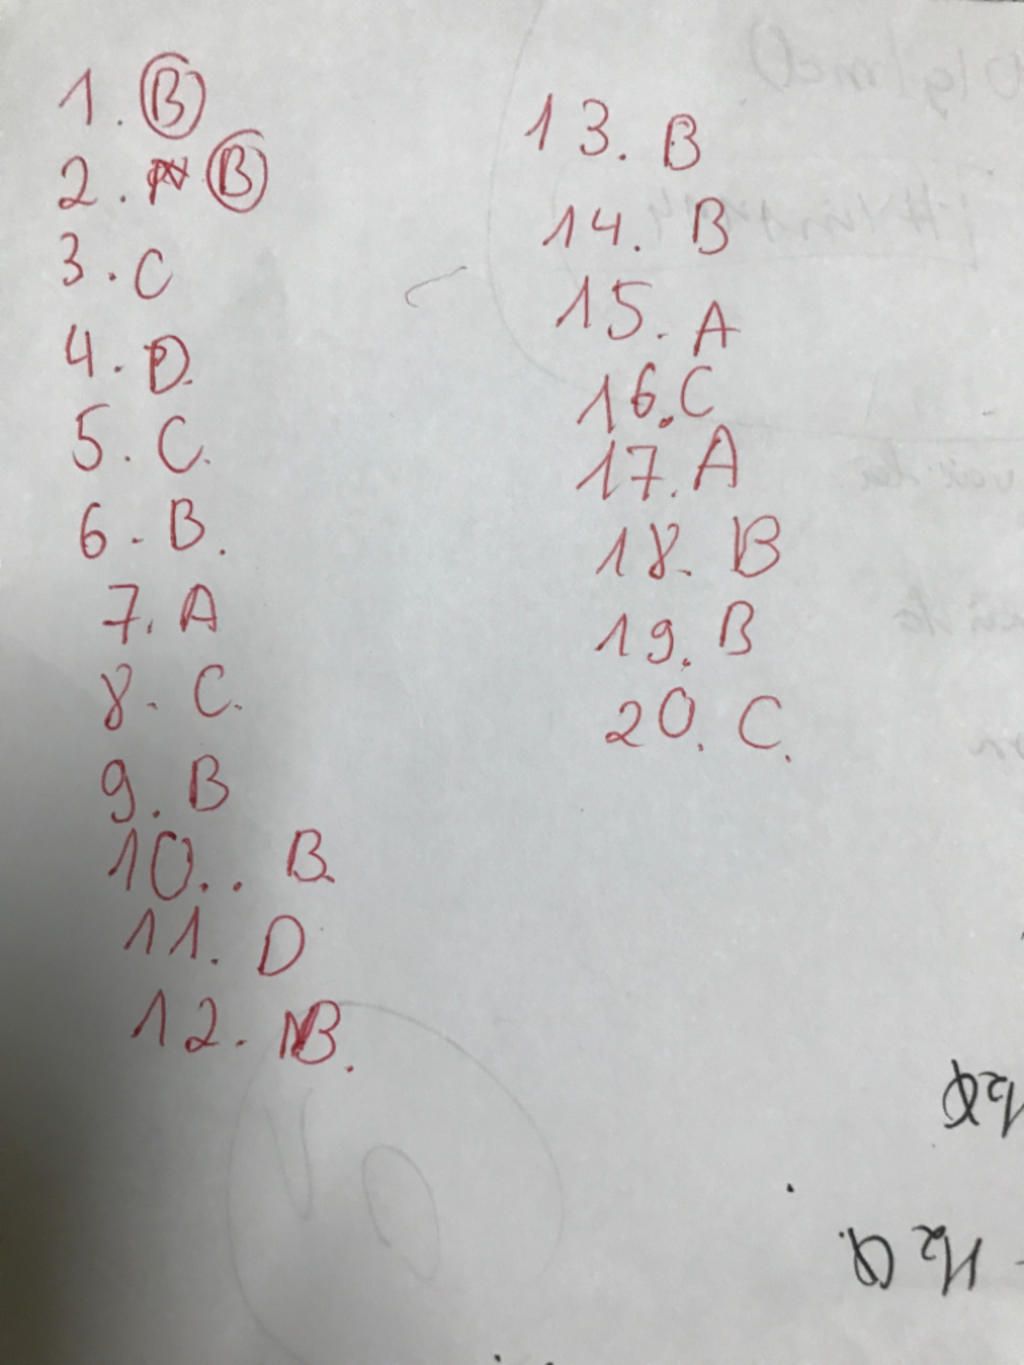 1. B
2. B
3. C
4. D.
5. C.
6. B.
7. A
8. C.
9. B
10.. B.
11. D
12. B.
13. B
14. B
15. A
16. C
17. A
18. B
19. B
20. C.
H2O
H2O.